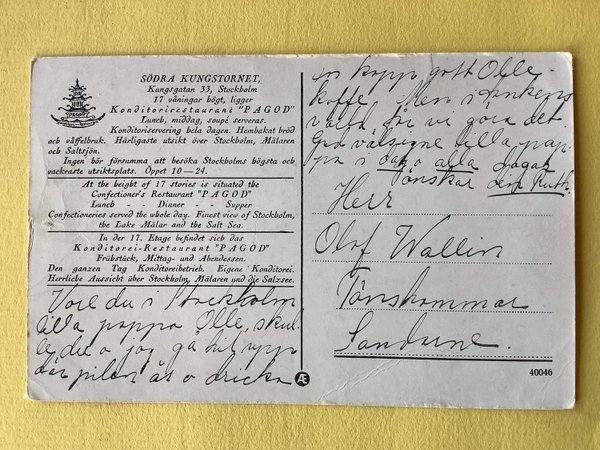 SÖDRA KUNGSTORNET,
Kungsgatan 33, Stockholm
17 våningar högt, ligger
Konditorirestaurant "PAGOD"
Lunch, middag, soupé serveras.
Konditoriservering hela dagen. Hembakat bröd
och våffelbruk. Härligaste utsikt över Stockholm, Mälaren
och Saltsjön.
Ingen bör försumma att besöka Stockholms högsta och
vackraste utsiktsplats. Öppet 10—24.
At the height of 17 stories is situated the
Confectioner's Restaurant "PAGOD"
Lunch - - Dinner - - Supper
Confectioneries served the whole day. Finest view of Stockholm,
the Lake Mälar and the Salt Sea.
In der 17. Etage befindet sich das
Konditorei-Restaurant "PAGOD"
Frühstück, Mittag- und Abendessen.
Den ganzen Tag Konditoreibetrieb. Eigene Konditorei.
Herrliche Aussicht über Stockholm, Mälaren und die Salzsee.
Vore du i Stockholm
lilla pappa Olle, skul-
le du o jag gå hit upp
där pilen är o dricka
en kopp gott Olle-
kaffe. Men i tankens
värld, får vi göra det.
Gud välsigne lilla pap-
pa i dag o alla dagar
önskar din Ruth.
Herr
Olof Wallin
Tönshammar
Sandarne.
Æ
40046